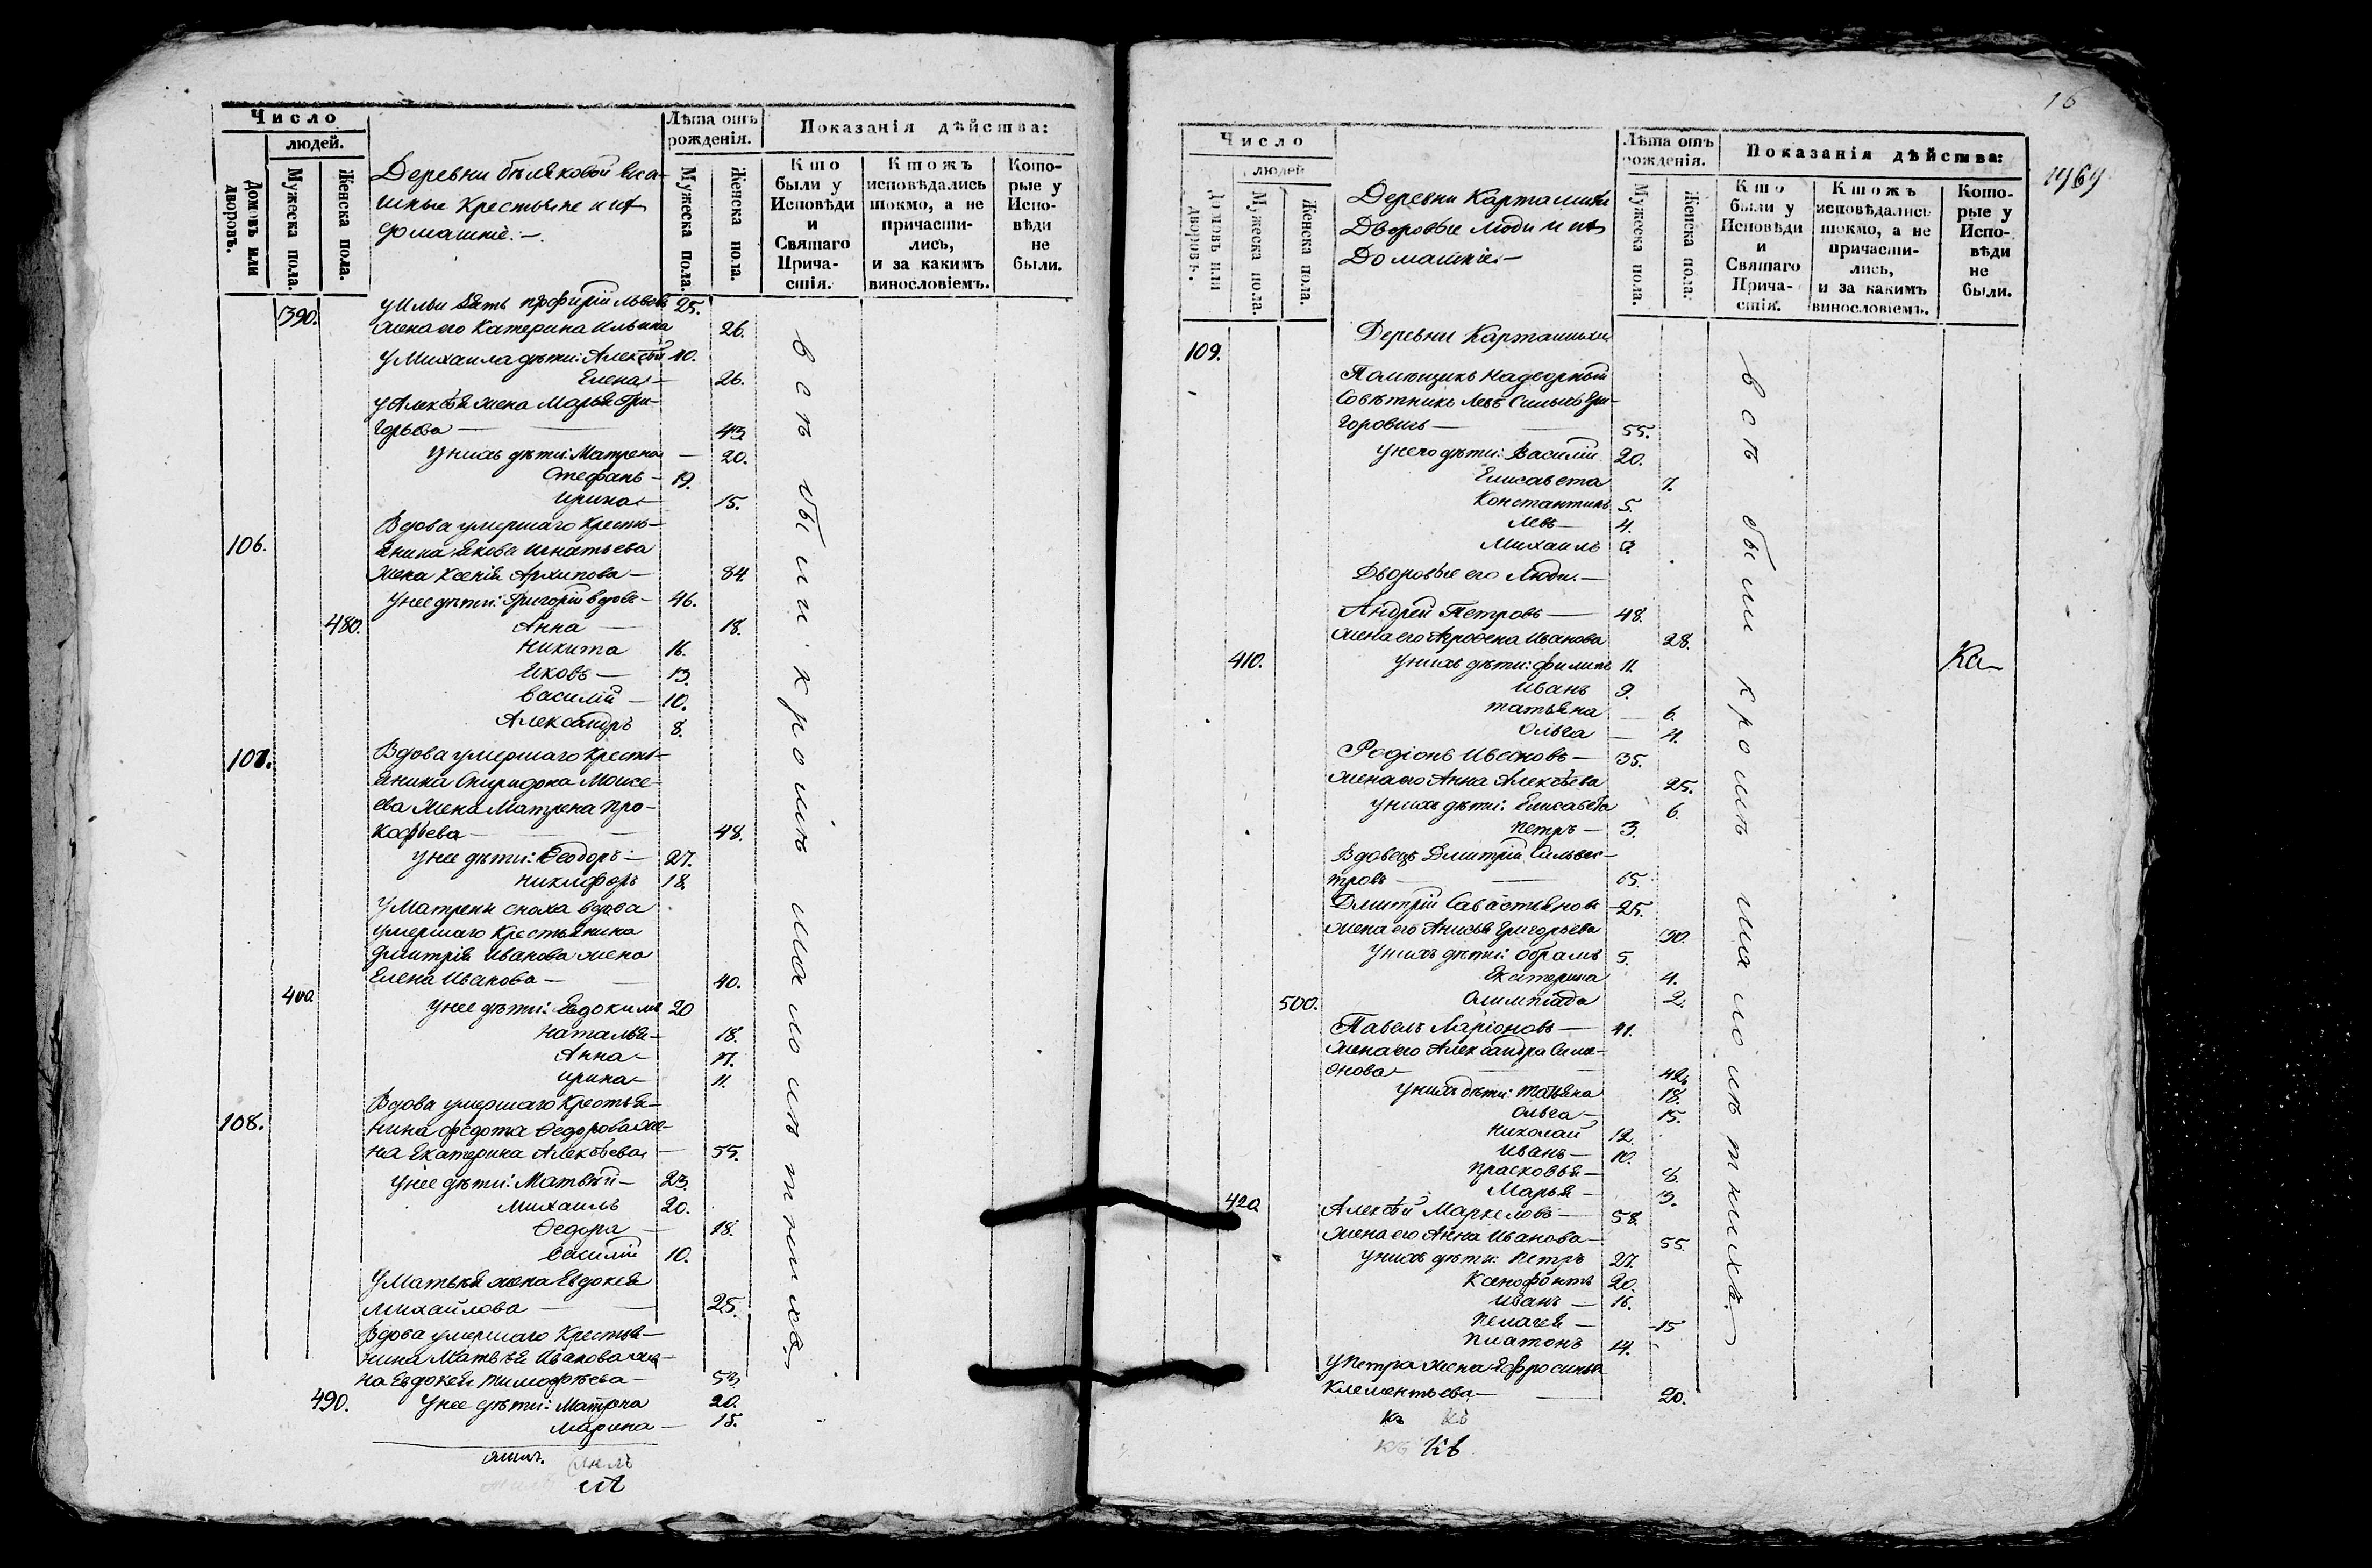 Число
людей.
Домовъ или дворовъ.
Мужеска пола.
Женска пола.
Деревни Бѣляковой Яса-
шные Крестьяне и ихъ
домашніе.-
Лѣта отъ
рожденія.
Мужеска пола.
Женска пола.
Показанія дѣйства:
Кто
были у
Исповѣди
и
Святаго
Прича-
стія.
Ктожъ
исповѣдались
токмо, а не
причасти-
лись,
и за какимъ
винословіемъ.
Кото-
рые у
Испо-
вѣди
не
были.
390. У Ильи зять Порфирій Львовъ 25.
жена его Катерина Ильина 26.
У Михаила дѣти: Алексѣй 40.
Елена 26.
У Алексѣя жена Марья Гри-
горьева 43.
У нихъ дѣти: Матрена 20.
Стефанъ 19.
Ирина 15.
Вдова умершаго Кресть-
106. янина Якова Игнатьева
жена Ксенія Архипова 84.
У нее дѣти: Григорій вдовъ 46.
480. Анна 18.
Никита 16.
Яковъ 13.
Василій 10.
Александръ 8.
107. Вдова умершаго Кресть-
янина Спиридона Моисе-
ева жена Матрена Про-
кофьева 48.
У нее дѣти: Ѳеодоръ 27.
Никифоръ 18.
У Матрены сноха вдова
умершаго Крестьянина
Дмитрія Иванова жена
Елена Иванова 40.
400. У нее дѣти: Евдокимъ 20
Наталья 18.
Анна
Ирина 11.
Вдова умершаго Крестья-
108. нина Федота Ѳедорова же-
на Екатерина Алексѣева 55.
У нее дѣти: Матвѣй 23.
Михаилъ 20.
Ѳедора 18.
Василій 10.
У Матвѣя жена Евдокея
Михайлова 25.
Вдова умершаго Крестья-
нина Матвѣя Иванова же-
на Евдокея Тимофѣева 53.
490. У нее дѣти: Матрена 20.
Марина 15.
всѣ были кромѣ малолѣтнихъ
16
Число
людей
Домовъ или дворовъ.
Мужеска пола.
Женска пола.
Деревни Карташихи
Дворовые люди и ихъ
Домашніе
Лѣта отъ
рожденія.
Мужеска пола.
Женска пола.
Показанія дѣйства:
Кто
были у
Исповѣди
и
Святаго
Прича-
стія.
Ктожъ
исповѣдались
токмо, а не
причасти-
лись,
и за какимъ
винословіемъ.
Кото-
рые у
Испо-
вѣди
не
были.
Деревни Карташихи
109.
Помѣщикъ Надворный
Совѣтникъ Левъ
горовичь 55.
У него дѣти: Василій 20.
Елисавета 7.
Константинъ 5.
Левъ 4.
Михаилъ
Дворовые его Люди.
Андрей Петровъ 48.
жена его Агрофена Иванова 28.
410. У нихъ дѣти: Филипъ 11.
Ка
Иванъ 9.
Татьяна 6.
Ольга 4.
Родіонъ Ивановъ 35.
жена его Анна Алексѣева 25.
У нихъ дѣти: Елисавета 6.
Петръ 3.
Вдовецъ Дмитрій Сильвес-
тровъ 65.
Дмитрій Савастьяновъ 25.
жена его Анисья Григорьева 30.
У нихъ дѣти: Обрамъ 5.
Екатерина 4.
500. Олимпіада 2.
Павелъ Ларіоновъ 41.
жена его Александра Симе-
онова 42.
У нихъ дѣти: Татьяна 18.
Ольга 15.
Николай 12.
Иванъ 10.
Прасковья
Марья 3.
420. Алексѣй Маркеловъ 58.
жена его Анна Иванова 55.
У нихъ дѣти: Петръ 27.
Ксенофонтъ 20.
Иванъ 16.
Пелагея 15
Платонъ 14.
У Петра жена Ефросинья
Клементьева 20.
всѣ были кромѣ малолѣтнихъ.